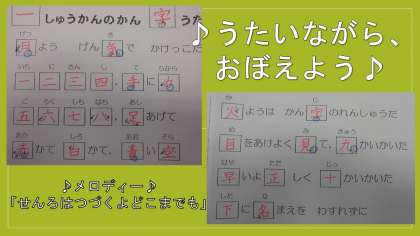 一しゅうかんのかん字うた
げつ
月よう げん気で かけっこだ
いち に さん し て ちから
一二三四、手に力
ご ろく しち はち あし
五六七八、足あげて
あか しろ あお そら
赤かて 白かて、青い空
♪うたいながら、
おぼえよう♪
か じ
火ようは かん字のれんしゅうだ
め み きゅう
目をあけよく見て、九かいかいた
はや ただ じっ
早いよ正しく 十かいかいた
した な
下に名まえを わすれずに
♪メロディー♪
「せんろはつづくよどこまでも」